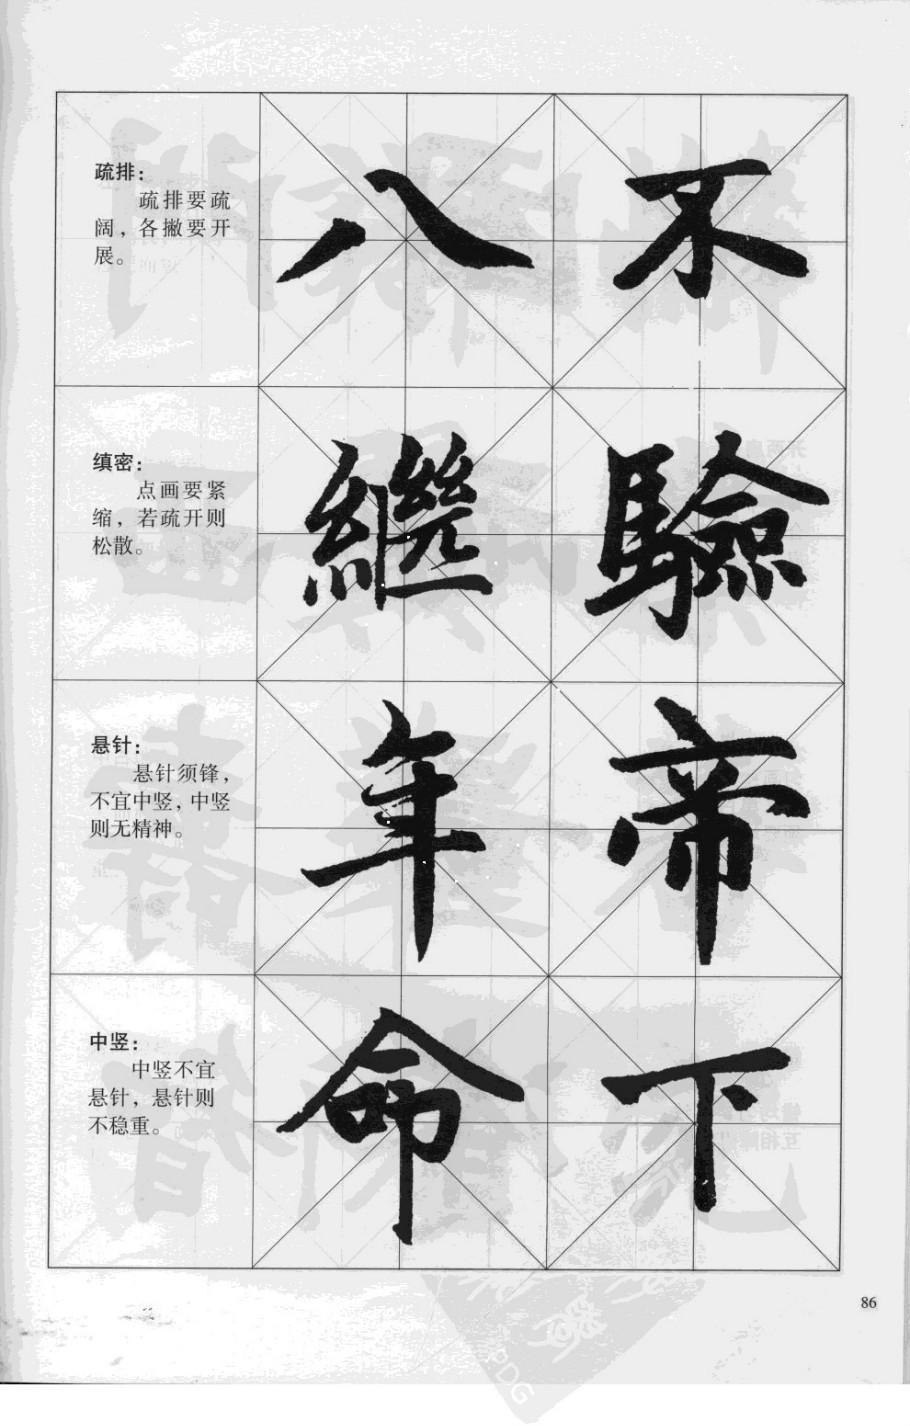 疏排：
疏排要疏
阔，各撇要开
展。
八 不
缜密：
点画要紧
缩，若疏开则
松散。
繼 驗
悬针：
悬针须锋，
不宜中竖，中竖
则无精神。
年 帝
中竖：
中竖不宜
悬针，悬针则
不稳重。
命 下
86
PDG